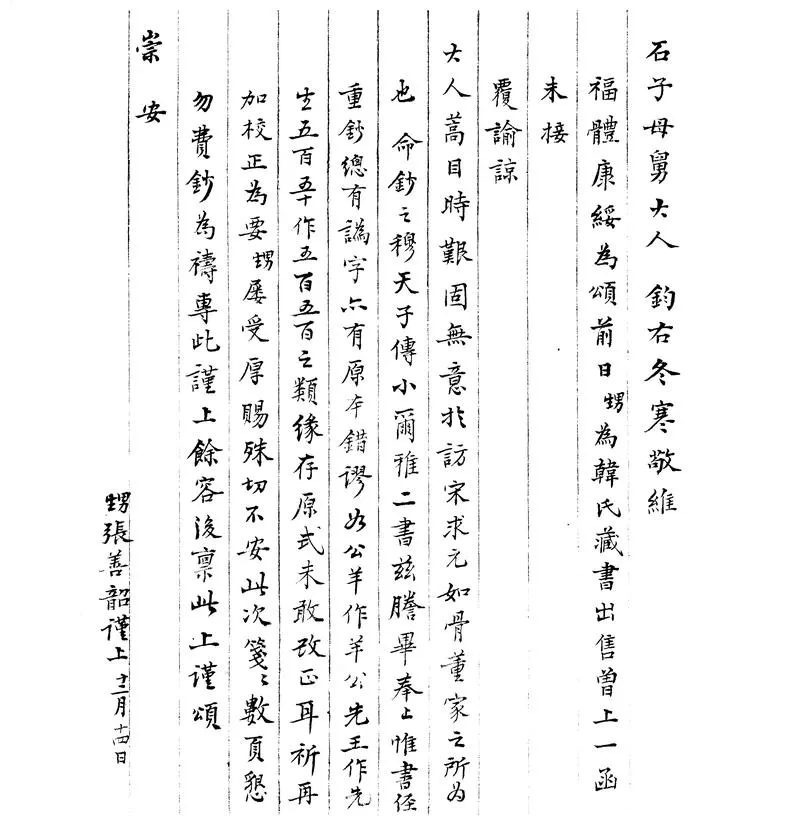 石子母舅大人 鈞右冬寒敬維
福體康綏為頌前日甥為韓氏藏書出售曾上一函
未接
覆諭諒
大人蒿目時艱固無意於訪宋求元如骨董家之所為
也 命鈔之穆天子傳小爾雅二書茲謄畢奉上惟書經
重鈔總有譌字亦有原本錯謬如公羊作羊公先王作先
生五百五十作五百五百之類緣存原式未敢改正耳祈再
加校正為要甥屡受厚賜殊切不安此次箋箋數頁懇
勿費鈔為禱專此謹上餘容後稟此上謹頌
崇安
甥張善韶謹上 十二月十四日